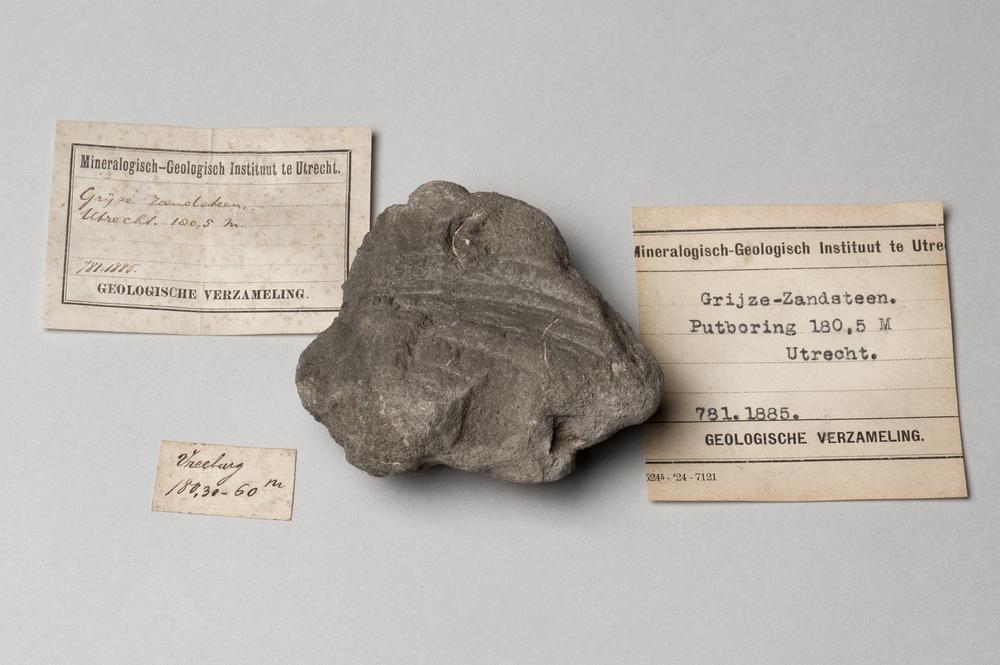 Mineralogisch-Geologisch Instituut te Utrecht.
Grijze Zandsteen.
Utrecht. 180,5 m.
781.1885.
GEOLOGISCHE VERZAMELING.
Vreeburg
180,30-60 m
Mineralogisch-Geologisch Instituut te Utre
Grijze-Zandsteen.
Putboring 180,5 M
Utrecht.
781.1885.
GEOLOGISCHE VERZAMELING.
5245 - '24 - 7121